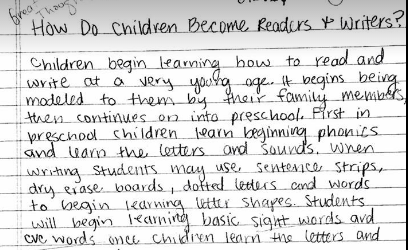 Great
Thoug
How Do Children Become Readers & Writers?
Children begin learning how to read and
write at a very young age. It begins being
modeled to them by their family members,
then continues on into preschool. First in
preschool children learn beginning phonics
and learn the letters and sounds. When
writing students may use sentence strips,
dry erase boards, dotted letters and words
to begin learning letter shapes. Students
will begin learning basic sight words and
cvc words once children learn the letters and